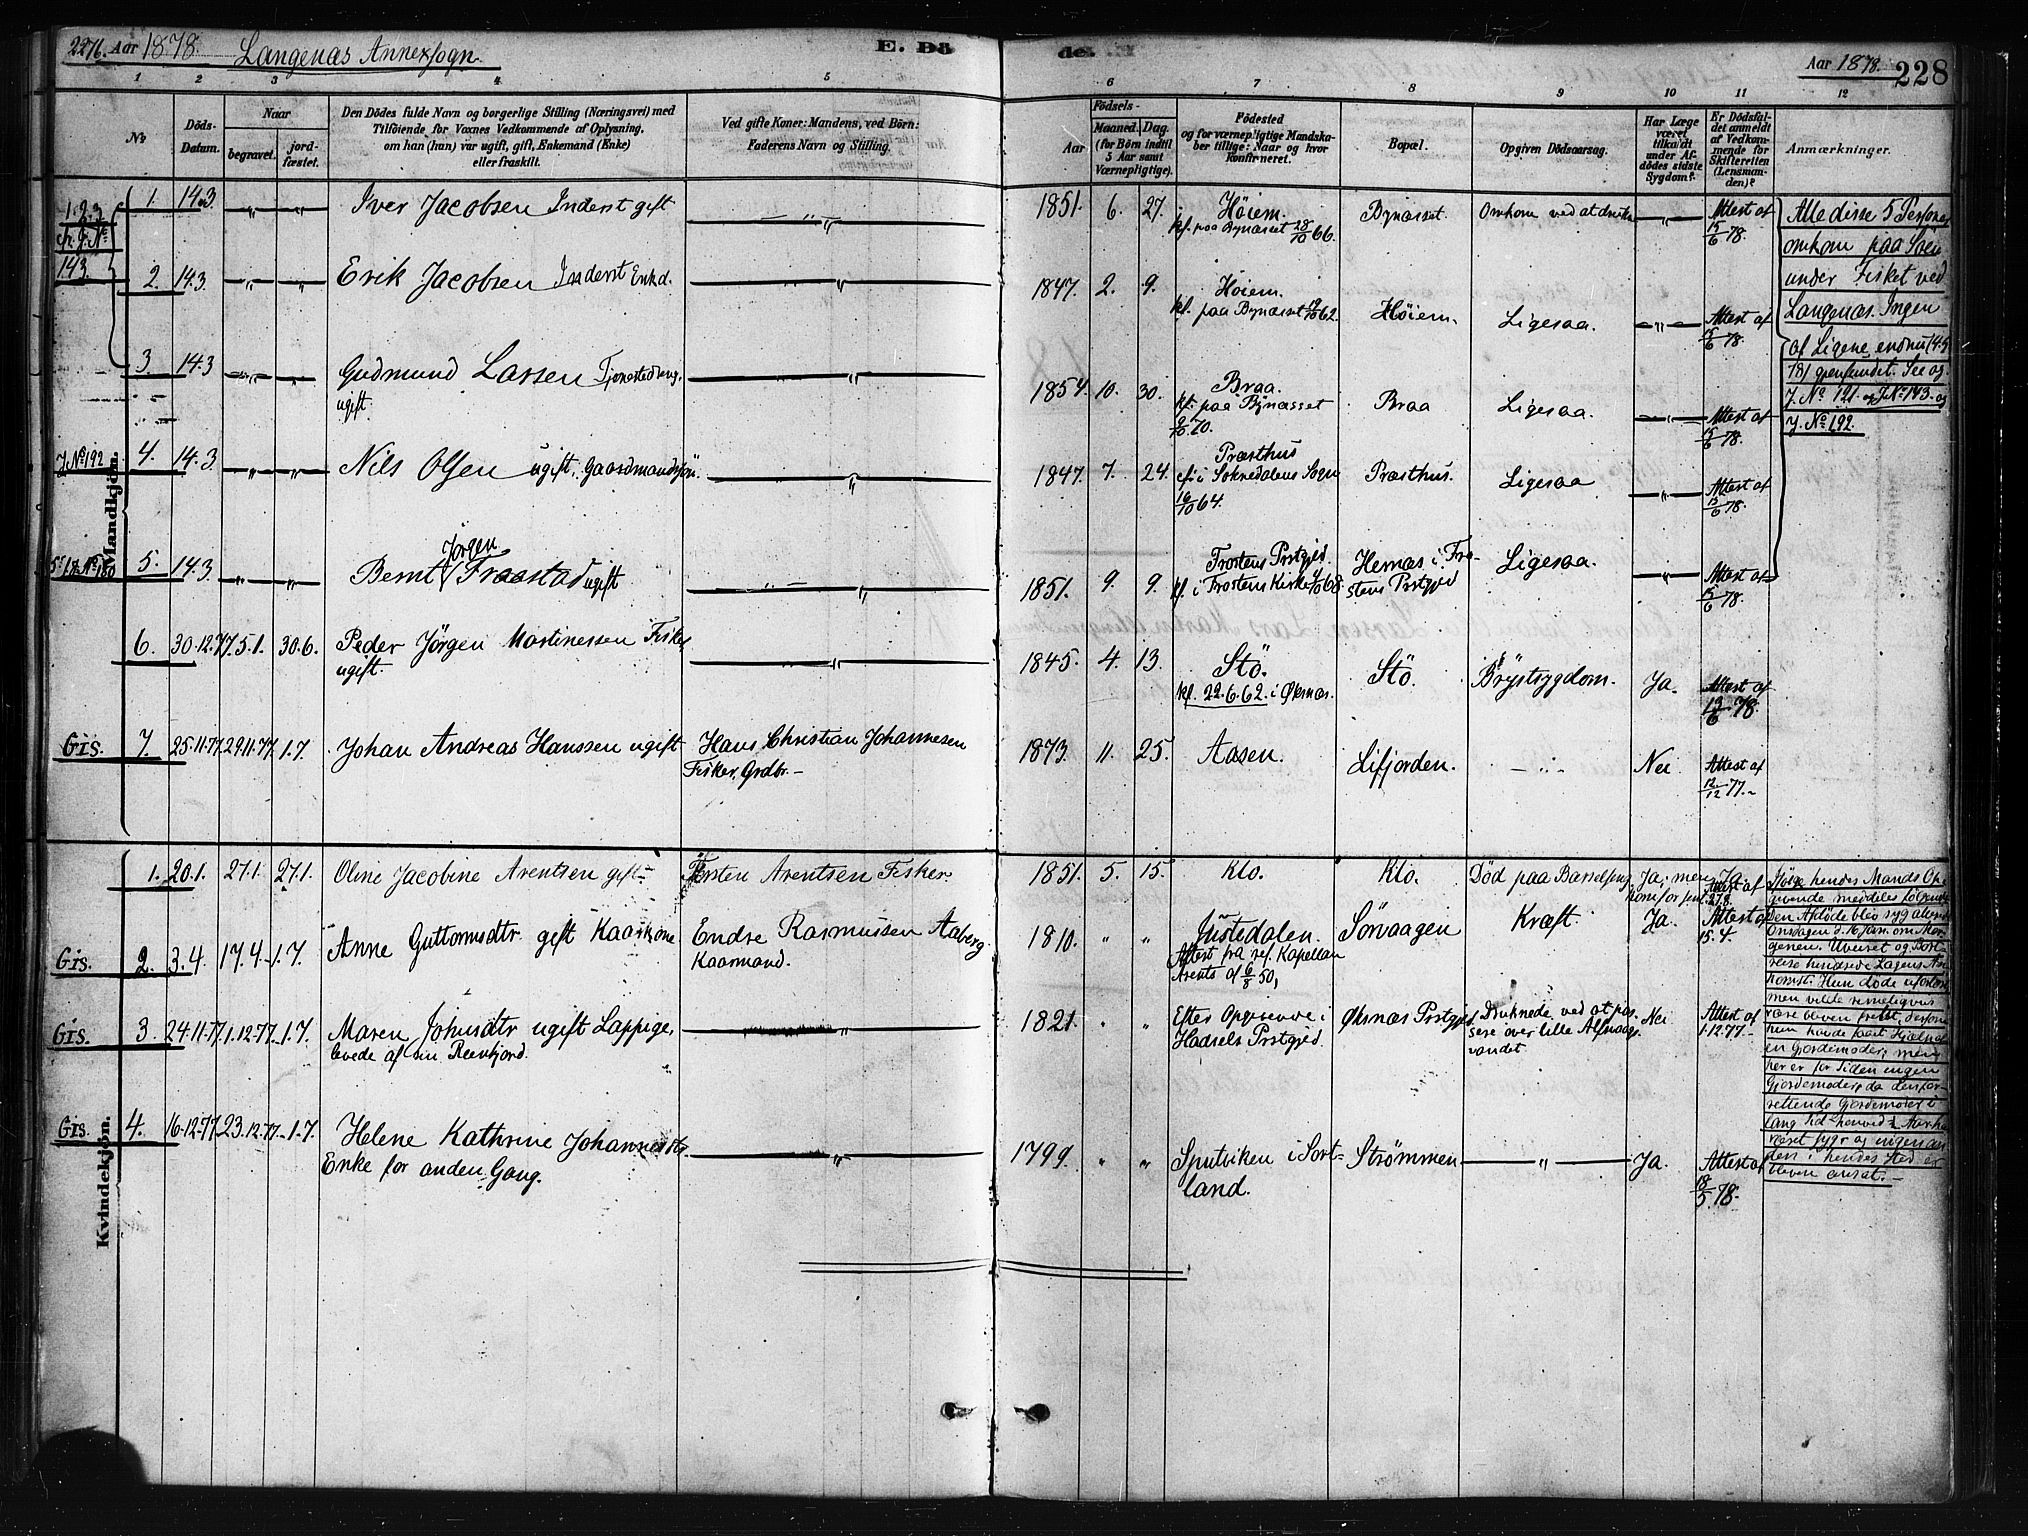 227b. Aar 1878. Langenæs Annexsogn.
E. Dö
de.
Aar 1878.
228
1 2 3 4 5 6 7 8 9 10 11 12
No
Döds-
Datum.
Naar
begravet.
jord-
fæstet.
Den Dödes fulde Navn og borgerlige Stilling (Næringsvei) med
Tilföiende, for Voxnes Vedkommende af Oplysning,
om han (hun) var ugift, gift, Enkemand (Enke)
eller fraskilt.
Ved gifte Koner: Mandens, ved Börn:
Faderens Navn og Stilling.
Födsels-
Aar
Maaned.
Dag.
(for Börn indtil
5 Aar samt
Værnepligtige).
Födested
og for værnepligtige Mandska-
ber tillige: Naar og hvor
konfirmeret.
Bopæl.
Opgiven Dödsaarsag.
Har Læge
været
tilkaldt
under Af-
dödes sidste
Sygdom?
Er Dödsfal-
det anmeldt
af Vedkom-
mende for
Skifteretten
(Lensman-
den)?
Anmærkninger.
Mandkjön.
1. 14.3. " " Iver Jacobsen Inderst gift — " — 1851. 6. 27. Höiem. Bynæsset. Omkom ved at drukne — " — Attest af
kf. paa Bynæsset 28/10 66. 15/6 78.
143.
2. 14.3. " " Erik Jacobsen Inderst Enkd. — " — 1847. 2. 9. Höiem. Höiem. Ligesaa. — " — Attest af
kf. paa Bynæsset 62. 15/6 78.
3. 14.3 " " Gudmund Larsen Tjenestedreng, — " — 1854. 10. 30. Braa. Braa Ligesaa. — " — Attest af
ugift. kf. paa Bynæsset 15/6 78.
70.
J. No 192 4. 14.3 " " Nils Olsen ugift, Gaardmandssön. — " — 1847. 7. 24. Præsthus Præsthus. Ligesaa — " — Attest af
cf. i Soknedalens Sogn 15/6 78.
64.
5. 14.3. " " Bernt Jörgen Fraastad ugift — " — 1851. 9. 9. Frostens Prstgjed. Hernæs i Fro- Ligesaa. — " — Attest af
kf. i Frostens Kirke 68 stens Prstgjed 15/6 78.
6. 30.12.77. 5.1. 30.6. Peder Jörgen Martinessen Fisker — " — 1845. 4. 13. Stö. Stö. Brystsygdom. Ja. Attest af
ugift. kf. 22.6.62. i Öksnæs. 19/6 78.
Gis. 7. 25.11.77. 29.11.77. 1.7. Johan Andreas Hanssen ugift Hans Christian Johannesen 1873. 11. 25. Aasen. Lifjorden. — " — Nei Attest af
Fisker, Grdbr. — 12/12 77. —
Alle disse 5 Personer
omkom paa Söen
under Fisket ved
Langenæs. Ingen
af Ligene endnu (4.5
78) gjenfundet. See og
J. No 121. og J No 143. og
J. No 192.
Kvindekjön.
1. 20.1. 27.1. 27.1. Oline Jacobine Arentsen gift — Arentsen Fisker. 1851. 5. 15. Klo. Klo. Död paa Barselseng Ja; men Ja.
Attest af
Gis. 2. 3.4. 17.4. 1.7. Anne Guttormsdtr. gift Kaarkone Endre Rasmussen Aaberg 1810. " " Justedalen. Sörvaagen Kræft. Ja. Attest af
Kaarmand. Attest fra ref. Kapellan 15.4.
Arentz af 6/8 50,
Gis. 3. 24.11.77. 1.12.77. 1.7. Maren Johnsdtr ugift Lappige, — " — 1821. " " Efter Opgivende i Öksnæs Prstgjed Druknede ved at pas- Nei Attest af
levede af sin Reenhjord. Hadsels Prstgjed. sere over lille Alsvaags- 1.12.77.
vandet
Gis. 4. 16.12.77. 23.12.77. 1.7. Helene Kathrine Johannesdtr — " — 1799. " " Sputviken i Sort- Strömmen — " — Ja. Attest af
Enke for anden Gang. land. 18/5 78.
Ifölge hendes Mands Op-
givende meddeles fölgende:
Den Afdöde blev syg
Onsdagen d. 16 Jan. om Mor-
genen. Uveiret og Bort-
reise hindrede Lægens An-
komst. Hun döde uforlöst
men vilde rimeligvis
være bleven frelst, dersom
hun havde faaet Hjælp af
en Gjordemoder; men
her er for Tiden ingen
Gjordemoder, da den for-
rettende Gjordemoder i
lang Tid har
været syg og ingen an-
den i hendes Sted er
bleven ansat. —